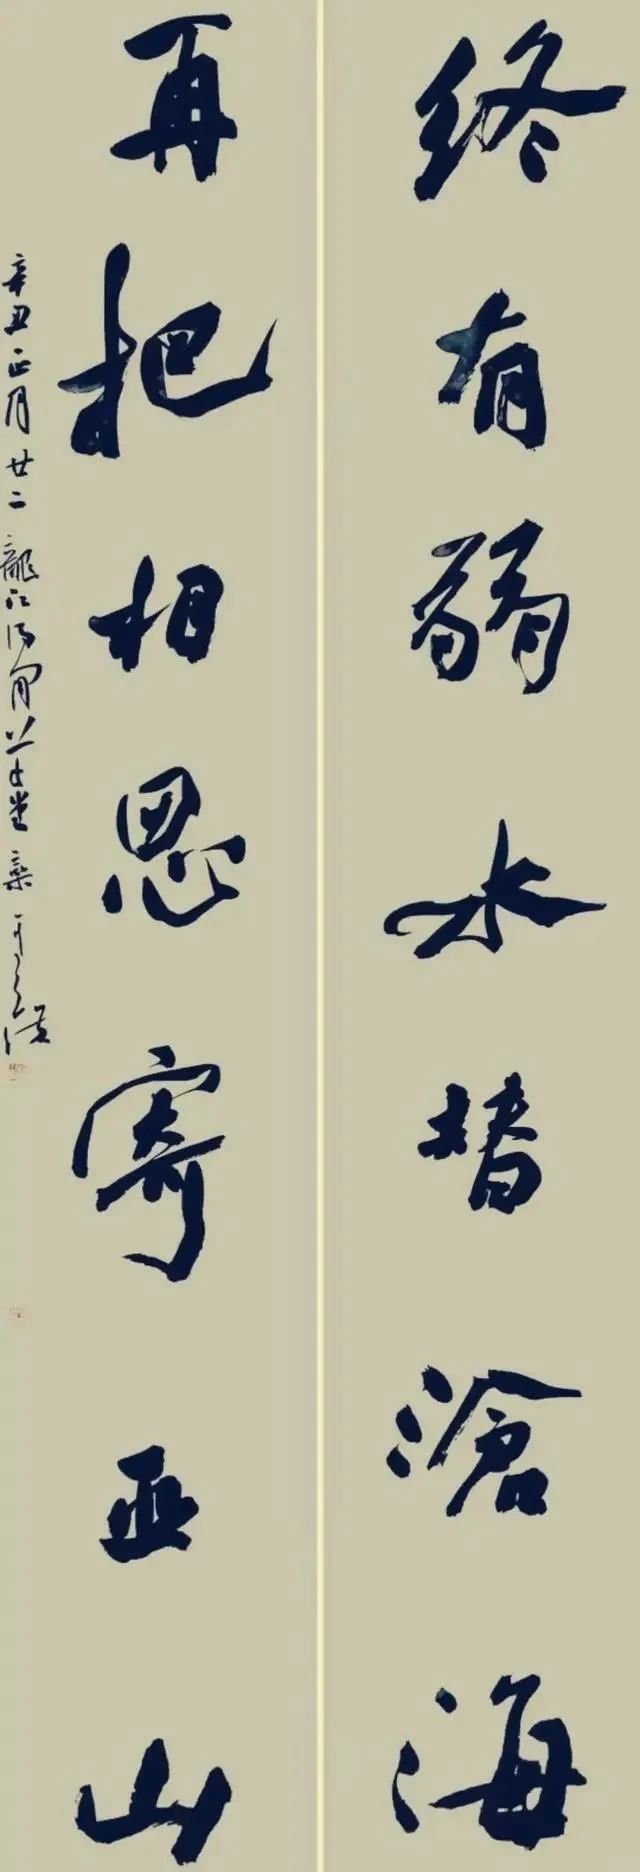 终有弱水替滄海
再把相思寄亚山
辛丑正月廿二龍江